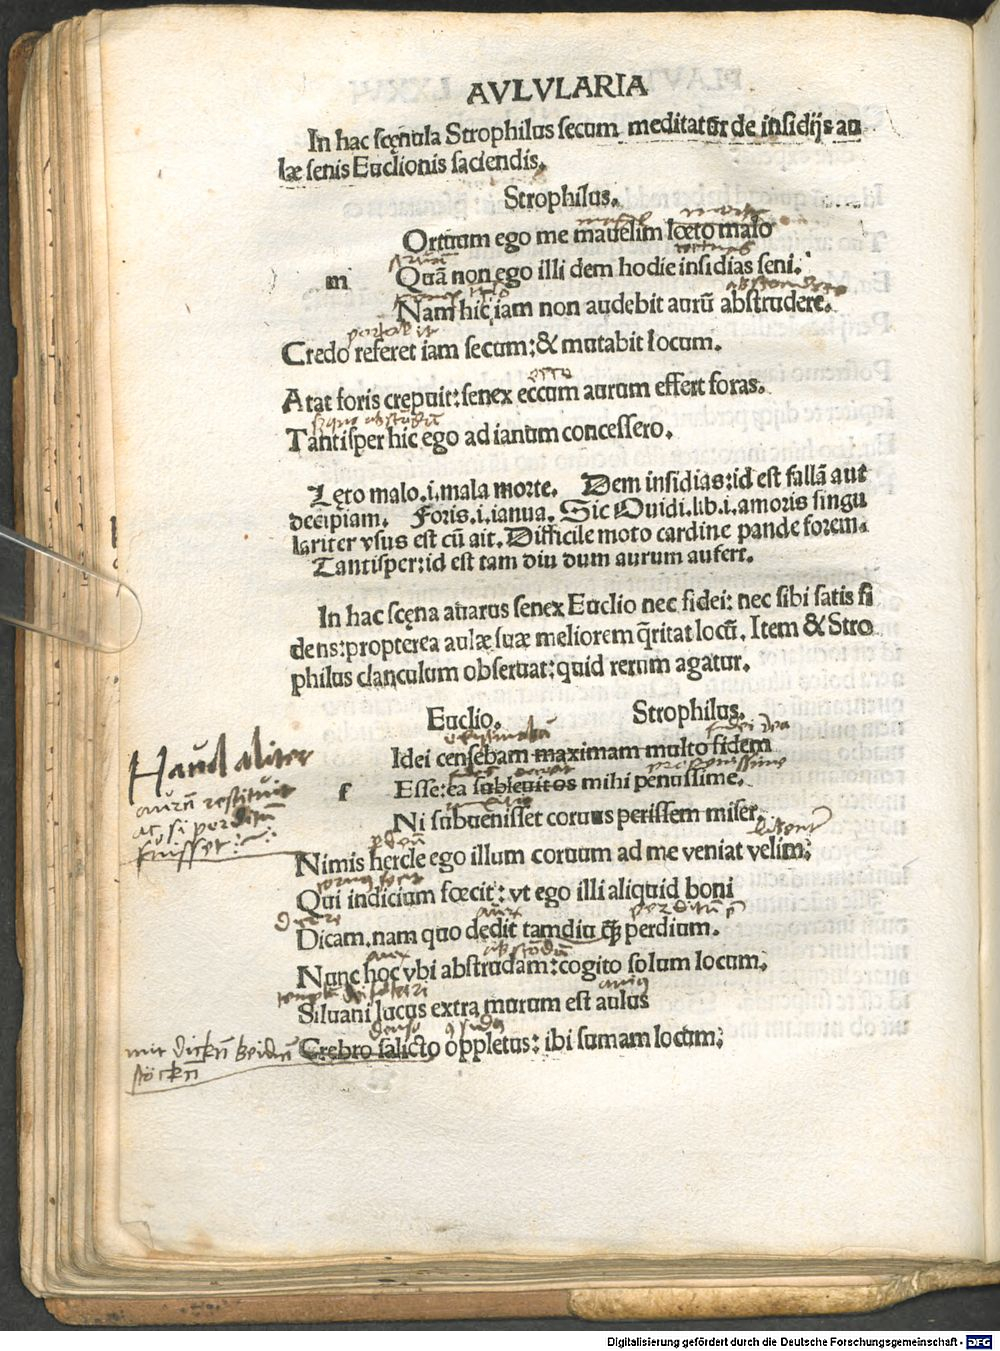 AVLVLARIA
In hac scęnula Strophilus secum meditatur de insidijs au
læ senis Euclionis faciendis.
Strophilus.
m
Ortuum ego me mauelim lœto malo
Quã non ego illi dem hodie insidias seni.
Nam hic iam non audebit aurũ abstrudere.
portabit
Credo referet iam secum: & mutabit locum.
Atat foris crepuit: senex eccum aurum effert foras.
Tantisper hic ego ad ianuam concessero.
Lęto malo .i. mala morte. Dem insidias: id est fallã aut
decipiam. Foris .i. ianua. Sic Ouidi. lib. i. amoris singu
lariter vsus est cũ ait. Difficile moto cardine pande forem.
Tantisper: id est tam diu dum aurum aufert.
In hac scęna auarus senex Euclio nec fidei: nec sibi satis fi
dens: propterea aulæ suæ meliorem q̃ritat locũ. Item & Stro
philus clanculum obseruat: quid rerum agatur.
Euclio. Strophilus.
fidei dea
f
Idei censebam maximam multo fidem
Esse: ea subleuit os mihi penussime.
Ni subuenisset coruus perissem miser.
Haud aliter
aurũ restituit
ac si perditũ
fuisset
Nimis hercle ego illum coruum ad me veniat velim:
Qui indicium fœcit: vt ego illi aliquid boni
dicere
Dicam. nam quo dedit tamdiu q̃ perdium.
Nunc hoc vbi abstrudam: cogito solum locum.
Siluani lucus extra murum est auius
denso
Crebro salicto oppletus: ibi sumam locum:
mit dickñ beidñ
stöckñ
Digitalisierung gefördert durch die Deutsche Forschungsgemeinschaft - DFG